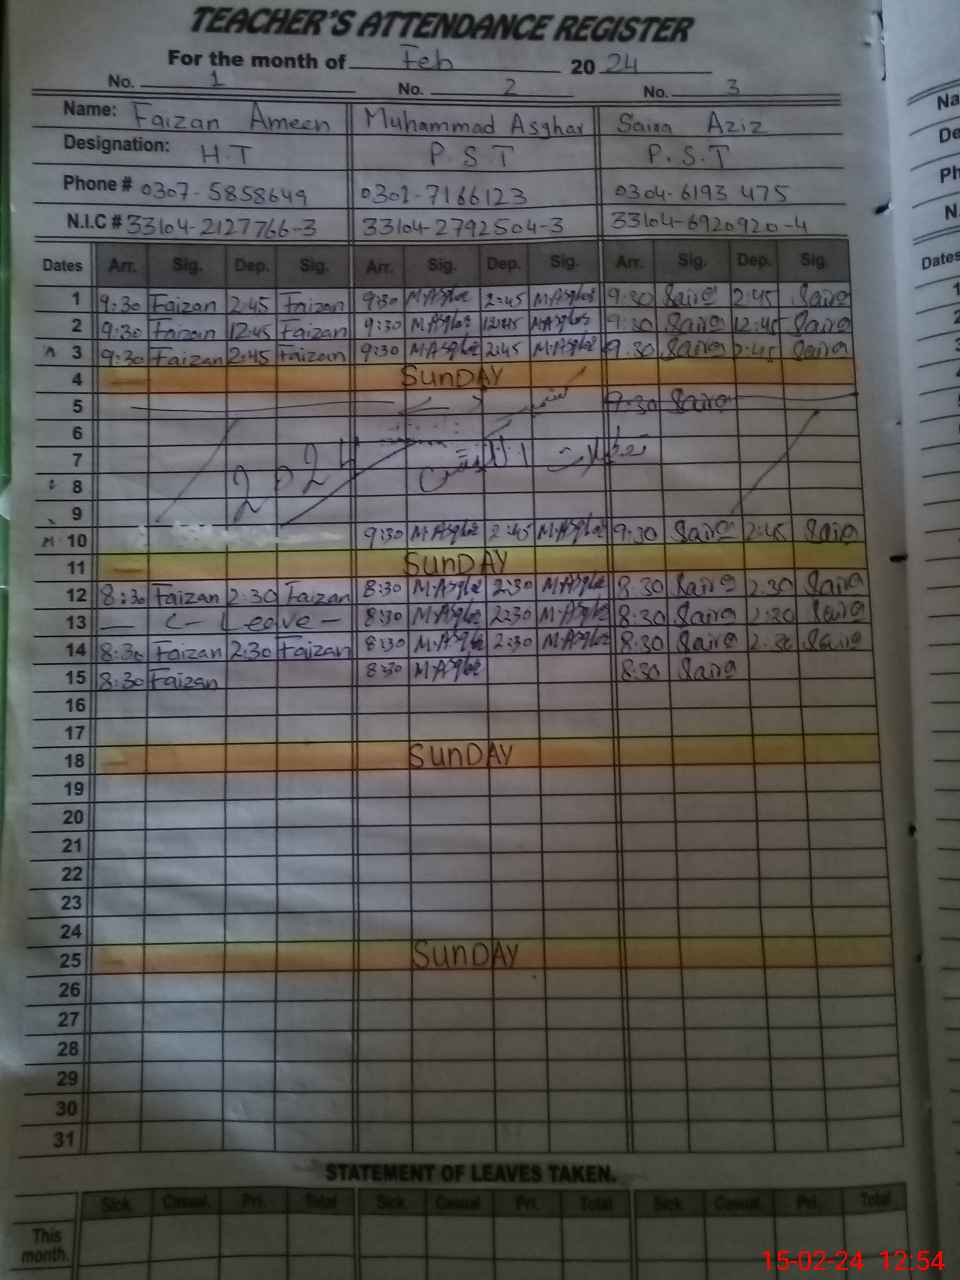 TEACHER'S ATTENDANCE REGISTER
For the month of Feb 2024
No. 1 No. 2 No. 3
Name: Faizan Ameen Muhammad Asghar Saira Aziz
Designation: H.T P.S.T P.S.T
Phone # 0307-5858649 0301-7166123 0304-6193 475
N.I.C # 33104-2127766-3 33104-2792504-3 33104-6920920-4
Dates Arr. Sig. Dep. Sig. Arr. Sig. Dep. Sig. Arr. Sig. Dep. Sig.
1 9:30 Faizan 2:45 Faizan 9:30 M.Asghar 2:45 M.Asghar 9:30 Saira 2:45 Saira
2 9:30 Faizan 12:45 Faizan 9:30 M.Asghar 12:45 M.Asghar 9:30 Saira 12:45 Saira
3 9:30 Faizan 2:45 Faizan 9:30 M.Asghar 2:45 M.Asghar 9:30 Saira 2:45 Saira
4 SunDAY
5 9:30 Saira
6
7 2024 تعطیلات الیکشن
8
9
10 9:30 M.Asghar 2:45 M.Asghar 9:30 Saira 2:45 Saira
11 SunDAY
12 8:30 Faizan 2:30 Faizan 8:30 M.Asghar 2:30 M.Asghar 8:30 Saira 2:30 Saira
13 — C - Leave - 8:30 M.Asghar 2:30 M.Asghar 8:30 Saira 2:30 Saira
14 8:30 Faizan 2:30 Faizan 8:30 M.Asghar 2:30 M.Asghar 8:30 Saira 2:30 Saira
15 8:30 Faizan 8:30 M.Asghar 8:30 Saira
16
17
18 SunDAY
19
20
21
22
23
24
25 SunDAY
26
27
28
29
30
31
STATEMENT OF LEAVES TAKEN.
Sick. Casual. Pri. Total Sick. Casual Pri. Total Sick. Casual. Pri. Total
This month.
15-02-24 12:54